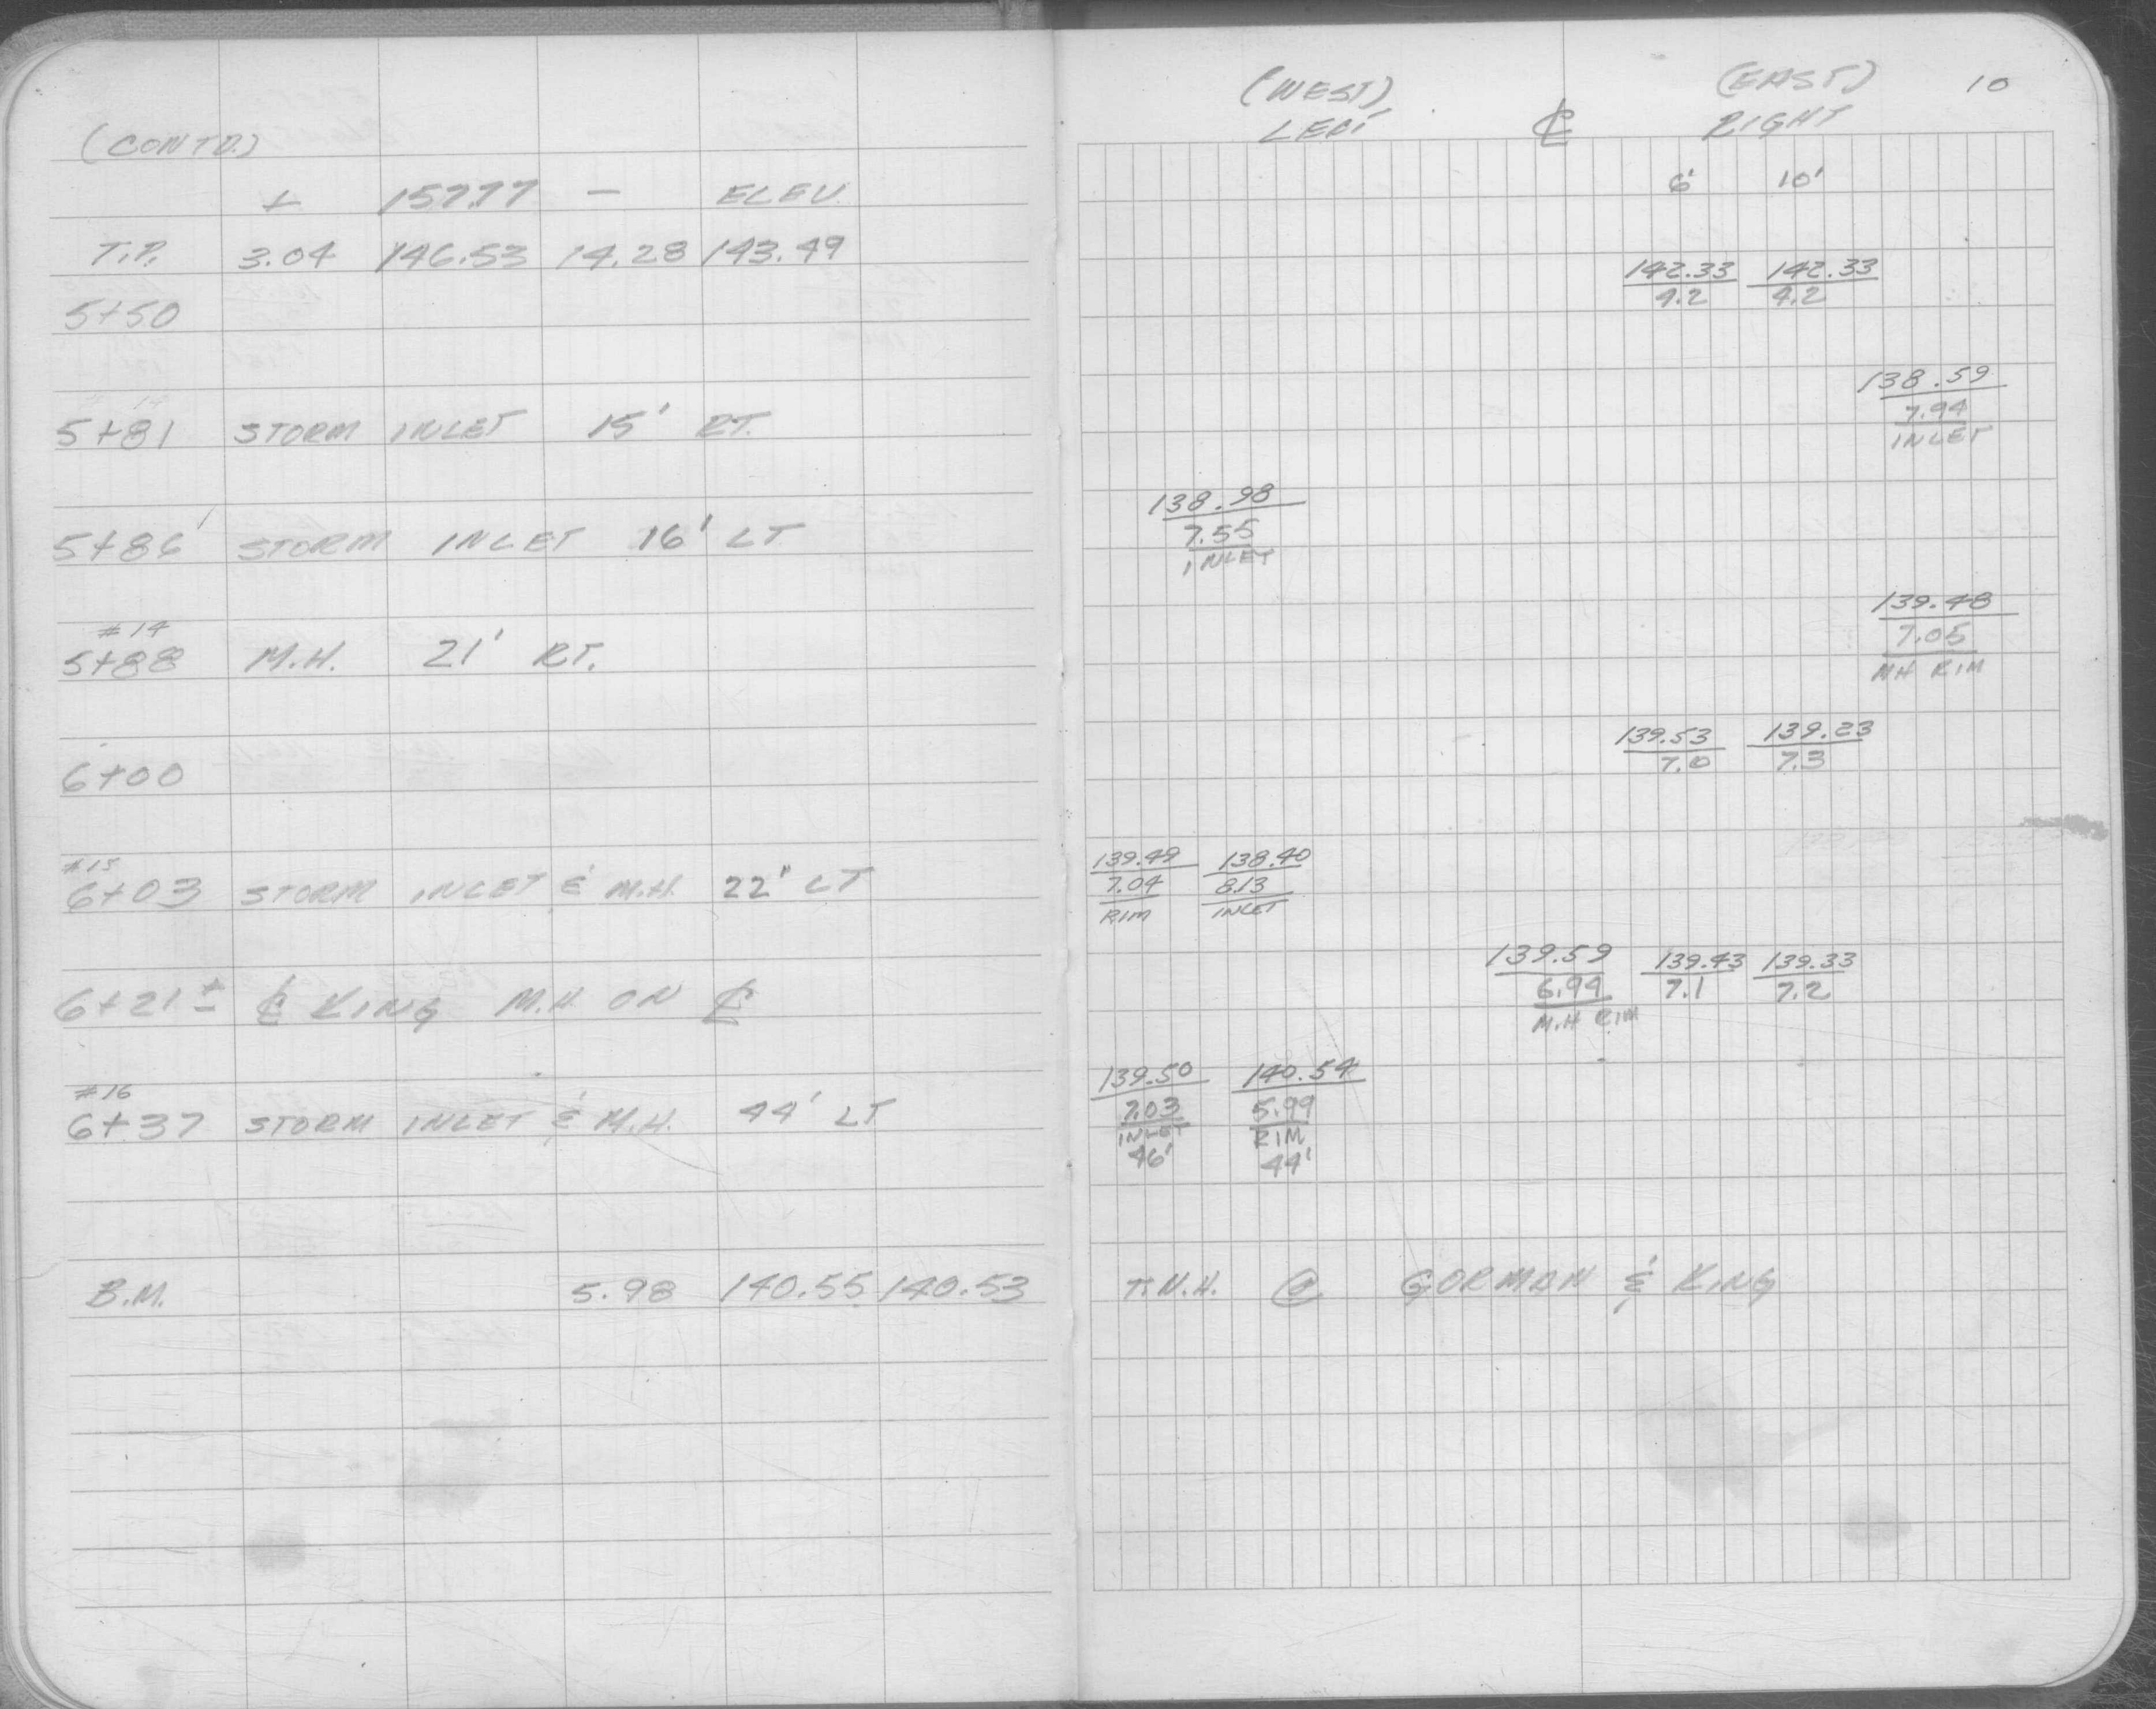 (CONTD.)
+ 157.77 - ELEV.
T.P. 3.04 146.53 14.28 143.49
5+50
5+81 STORM INLET 15' RT.
5+86' STORM INLET 16' LT
#14
5+88 M.H. 21' RT.
6+00
#15
6+03 STORM INLET & M.H. 22' LT
6+21± ℄ KING M.H. ON ℄
#16
6+37 STORM INLET & M.H. 44' LT
B.M. 5.98 140.55 140.53
(WEST) (EAST) 10
LEFT ℄ RIGHT
6' 10'
142.33 142.33
4.2 4.2
138.59
7.94
INLET
138.98
7.55
INLET
139.48
7.05
MH RIM
139.53 139.23
7.0 7.3
139.49 138.40
7.04 8.13
RIM INLET
139.59 139.43 139.33
6.94 7.1 7.2
M.H RIM
139.50 140.54
7.03 5.99
INLET RIM
46' 44'
T.N.H. @ GORMAN & KING